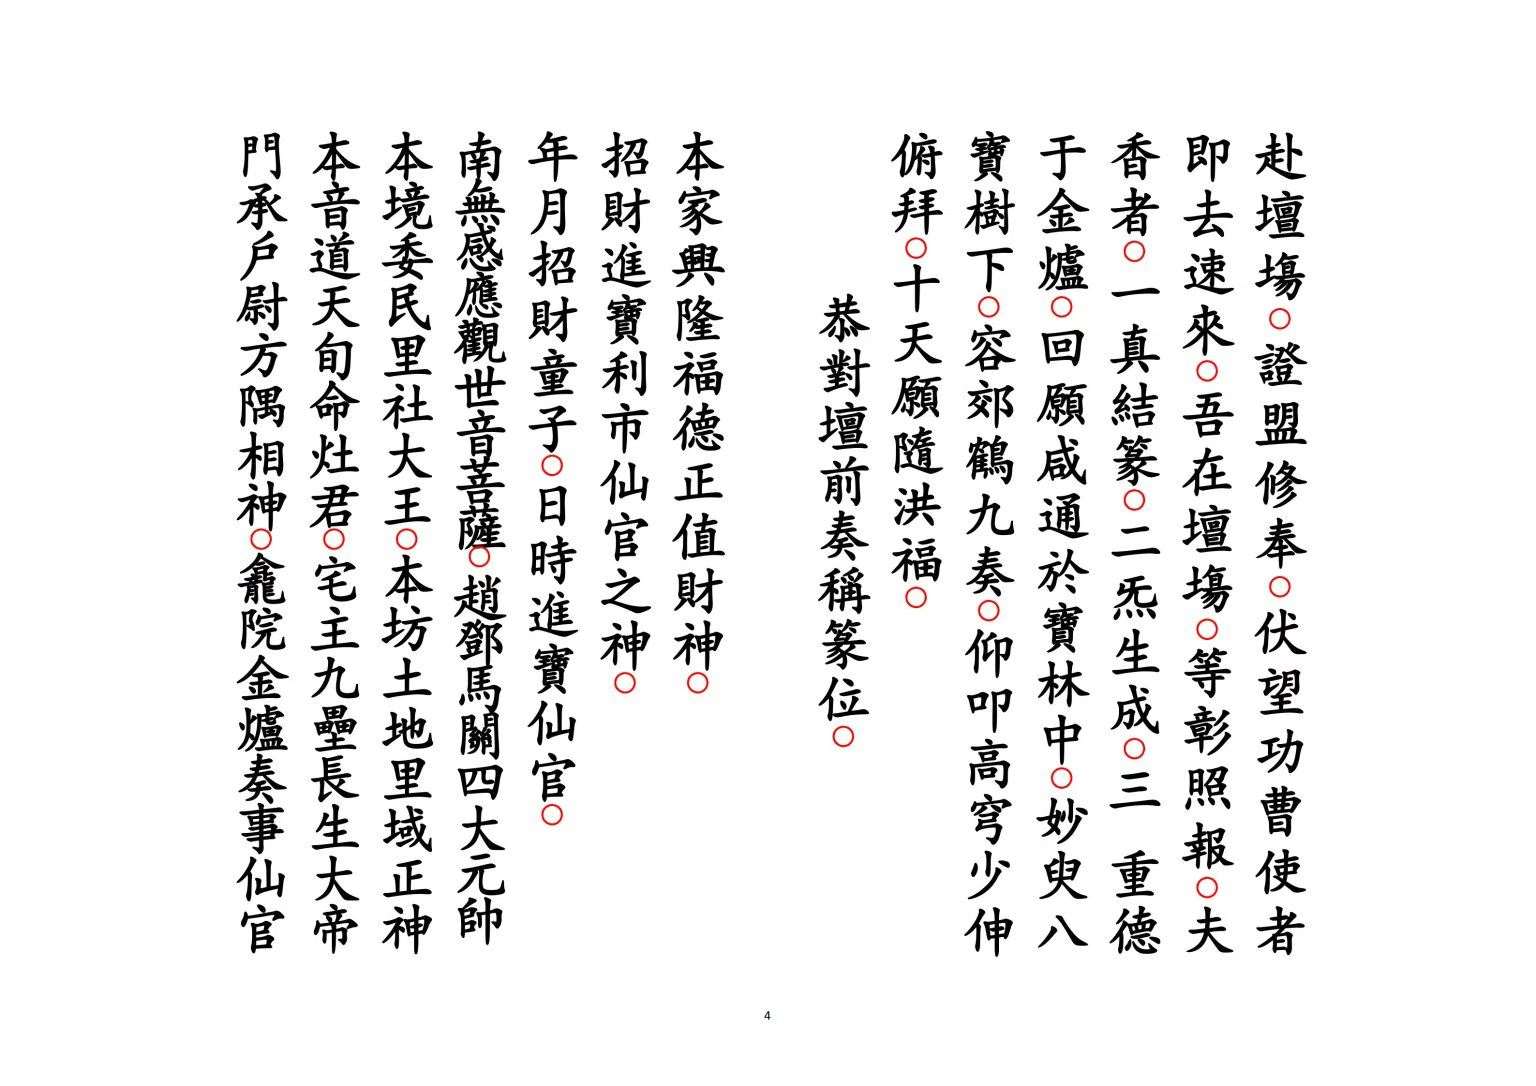 赴壇塲○證盟修奉○伏望功曹使者
即去速來○吾在壇塲○等彰照報○夫
香者○一真結篆○二炁生成○三 重德
于金爐○回願咸通於寶林中○妙臾八
寶樹下○容郊鶴九奏○仰叩高穹少伸
俯拜○十天願隨洪福○
恭對壇前奏稱篆位○
本家興隆福德正值財神○
招財進寶利市仙官之神○
年月招財童子○日時進寶仙官○
南無感應觀世音菩薩○趙鄧馬關四大元帥
本境委民里社大王○本坊土地里域正神
本音道天旬命灶君○宅主九壘長生大帝
門承戶尉方隅相神○龕院金爐奏事仙官
4